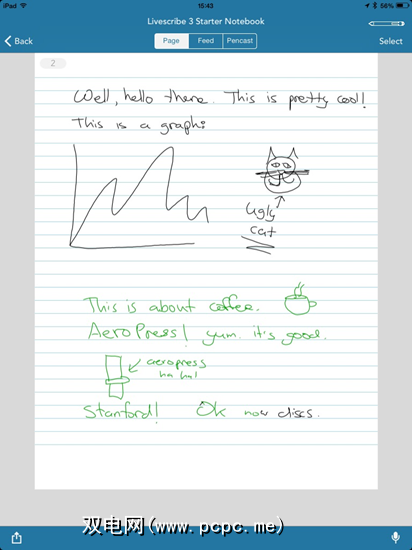 iPad 15:43 56%
Livescribe 3 Starter Notebook
Back Page Feed Pencast Select
2
Well, hello there. This is pretty cool!
This is a graph:
ugly
cat
This is about coffee.
AeroPress! yum. it's good.
aeropress
ha ha!
Stanford! Ok now discs.
双电网(www.pcpc.me)